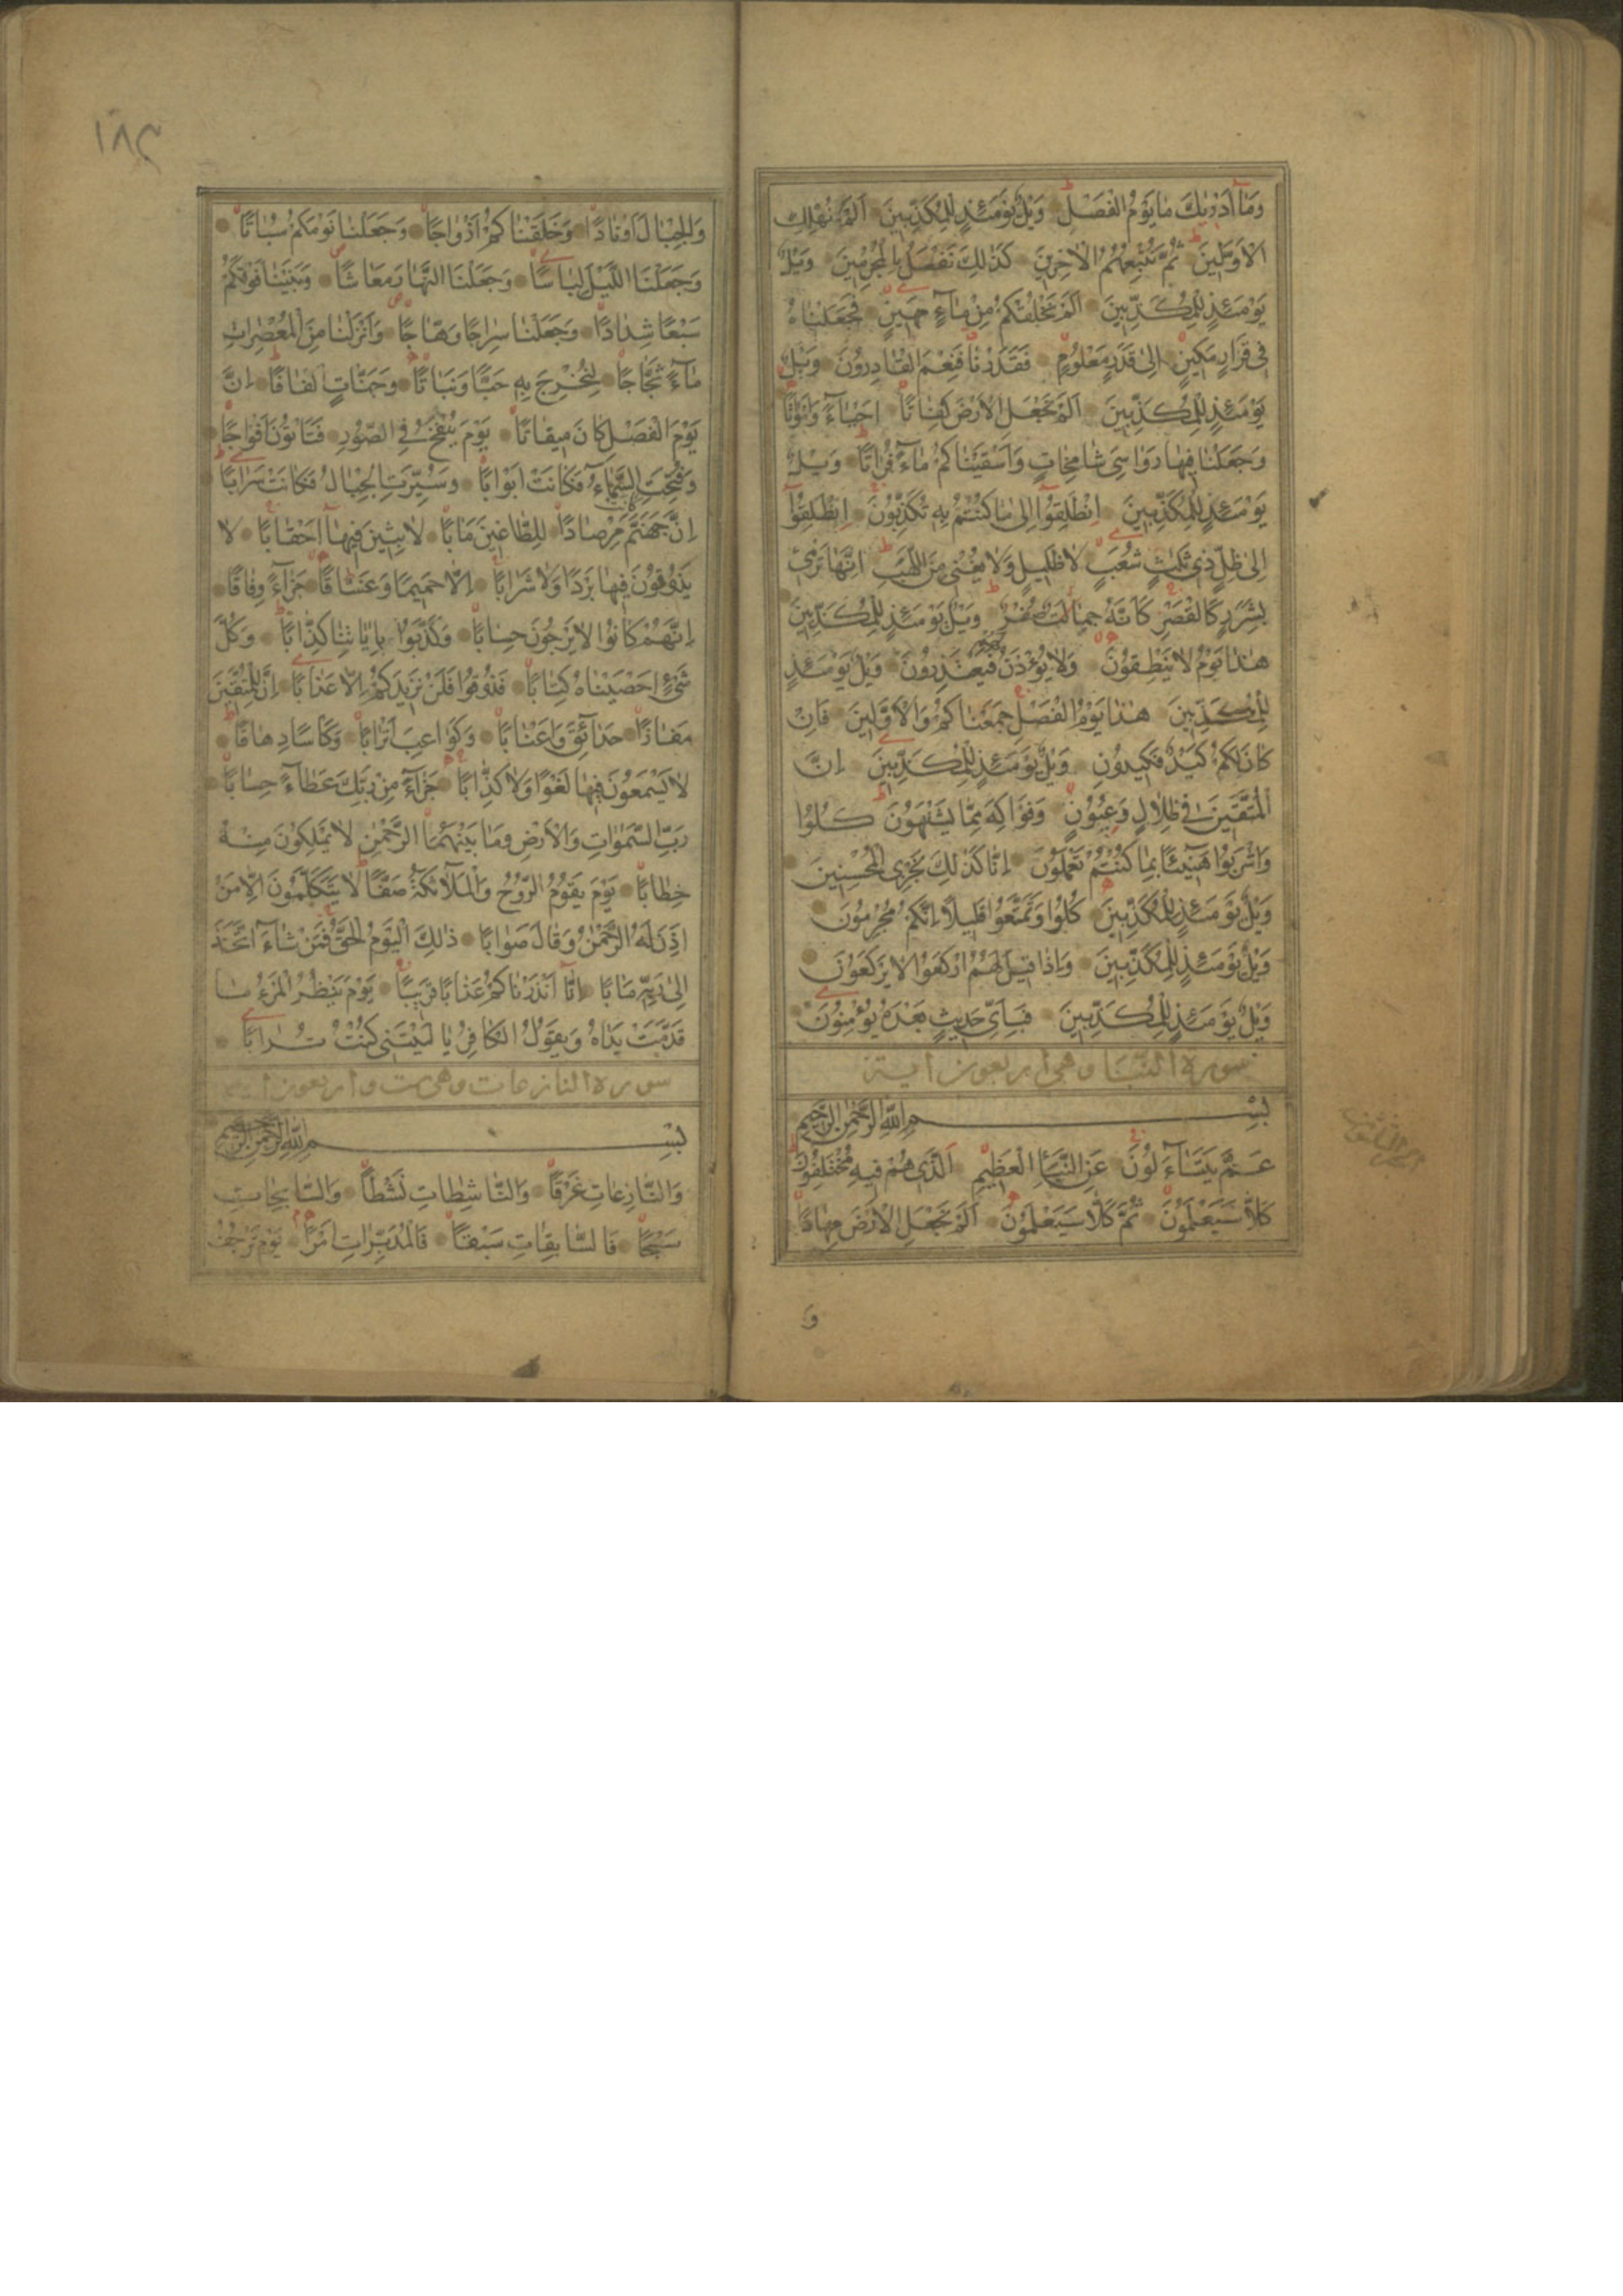 وَمَا أَدْرٰيكَ مَا يَوْمُ الْفَصْلِ وَيْلٌ يَوْمَئِذٍ لِلْمُكَذِّبِينَ اَلَمْ نُهْلِكِ
الْاَوَّلِينَ ثُمَّ نُتْبِعُهُمُ الْاٰخِرِينَ كَذٰلِكَ نَفْعَلُ بِالْمُجْرِمِينَ وَيْلٌ
يَوْمَئِذٍ لِلْمُكَذِّبِينَ اَلَمْ نَخْلُقْكُمْ مِنْ مَاءٍ مَهِينٍ فَجَعَلْنَاهُ
فِي قَرَارٍ مَكِينٍ اِلٰى قَدَرٍ مَعْلُومٍ فَقَدَرْنَا فَنِعْمَ الْقَادِرُونَ وَيْلٌ
يَوْمَئِذٍ لِلْمُكَذِّبِينَ اَلَمْ نَجْعَلِ الْاَرْضَ كِفَاتًا اَحْيَاءً وَاَمْوَاتًا
وَجَعَلْنَا فِيهَا رَوَاسِيَ شَامِخَاتٍ وَاَسْقَيْنَاكُمْ مَاءً فُرَاتًا وَيْلٌ
يَوْمَئِذٍ لِلْمُكَذِّبِينَ اِنْطَلِقُوا اِلٰى مَا كُنْتُمْ بِهِ تُكَذِّبُونَ اِنْطَلِقُوا
اِلٰى ظِلٍّ ذِي ثَلٰثِ شُعَبٍ لَا ظَلِيلٍ وَلَا يُغْنِي مِنَ اللَّهَبِ اِنَّهَا تَرْمِي
بِشَرَرٍ كَالْقَصْرِ كَاَنَّهُ جِمَالَتٌ صُفْرٌ وَيْلٌ يَوْمَئِذٍ لِلْمُكَذِّبِينَ
هٰذَا يَوْمُ لَا يَنْطِقُونَ وَلَا يُؤْذَنُ لَهُمْ فَيَعْتَذِرُونَ وَيْلٌ يَوْمَئِذٍ
لِلْمُكَذِّبِينَ هٰذَا يَوْمُ الْفَصْلِ جَمَعْنَاكُمْ وَالْاَوَّلِينَ فَاِنْ
كَانَ لَكُمْ كَيْدٌ فَكِيدُونِ وَيْلٌ يَوْمَئِذٍ لِلْمُكَذِّبِينَ اِنَّ
الْمُتَّقِينَ فِي ظِلَالٍ وَعُيُونٍ وَفَوَاكِهَ مِمَّا يَشْتَهُونَ كُلُوا
وَاشْرَبُوا هَنِيئًا بِمَا كُنْتُمْ تَعْمَلُونَ اِنَّا كَذٰلِكَ نَجْزِي الْمُحْسِنِينَ
وَيْلٌ يَوْمَئِذٍ لِلْمُكَذِّبِينَ كُلُوا وَتَمَتَّعُوا قَلِيلًا اِنَّكُمْ مُجْرِمُونَ
وَيْلٌ يَوْمَئِذٍ لِلْمُكَذِّبِينَ وَاِذَا قِيلَ لَهُمُ ارْكَعُوا لَا يَرْكَعُونَ
وَيْلٌ يَوْمَئِذٍ لِلْمُكَذِّبِينَ فَبِاَيِّ حَدِيثٍ بَعْدَهُ يُؤْمِنُونَ
سورة النبأ وهي اربعون آية
بِسْمِ اللّٰهِ الرَّحْمٰنِ الرَّحِيمِ
عَمَّ يَتَسَاءَلُونَ عَنِ النَّبَاِ الْعَظِيمِ اَلَّذِي هُمْ فِيهِ مُخْتَلِفُونَ
كَلَّا سَيَعْلَمُونَ ثُمَّ كَلَّا سَيَعْلَمُونَ اَلَمْ نَجْعَلِ الْاَرْضَ مِهَادًا
و
١٨٣
وَالْجِبَالَ اَوْتَادًا وَخَلَقْنَاكُمْ اَزْوَاجًا وَجَعَلْنَا نَوْمَكُمْ سُبَاتًا
وَجَعَلْنَا اللَّيْلَ لِبَاسًا وَجَعَلْنَا النَّهَارَ مَعَاشًا وَبَنَيْنَا فَوْقَكُمْ
سَبْعًا شِدَادًا وَجَعَلْنَا سِرَاجًا وَهَّاجًا وَاَنْزَلْنَا مِنَ الْمُعْصِرَاتِ
مَاءً ثَجَّاجًا لِنُخْرِجَ بِهِ حَبًّا وَنَبَاتًا وَجَنَّاتٍ اَلْفَافًا اِنَّ
يَوْمَ الْفَصْلِ كَانَ مِيقَاتًا يَوْمَ يُنْفَخُ فِي الصُّورِ فَتَاْتُونَ اَفْوَاجًا
وَفُتِحَتِ السَّمَاءُ فَكَانَتْ اَبْوَابًا وَسُيِّرَتِ الْجِبَالُ فَكَانَتْ سَرَابًا
اِنَّ جَهَنَّمَ كَانَتْ مِرْصَادًا لِلطَّاغِينَ مَاٰبًا لَابِثِينَ فِيهَا اَحْقَابًا لَا
يَذُوقُونَ فِيهَا بَرْدًا وَلَا شَرَابًا اِلَّا حَمِيمًا وَغَسَّاقًا جَزَاءً وِفَاقًا
اِنَّهُمْ كَانُوا لَا يَرْجُونَ حِسَابًا وَكَذَّبُوا بِاٰيَاتِنَا كِذَّابًا وَكُلَّ
شَيْءٍ اَحْصَيْنَاهُ كِتَابًا فَذُوقُوا فَلَنْ نَزِيدَكُمْ اِلَّا عَذَابًا اِنَّ لِلْمُتَّقِينَ
مَفَازًا حَدَائِقَ وَاَعْنَابًا وَكَوَاعِبَ اَتْرَابًا وَكَاْسًا دِهَاقًا
لَا يَسْمَعُونَ فِيهَا لَغْوًا وَلَا كِذَّابًا جَزَاءً مِنْ رَبِّكَ عَطَاءً حِسَابًا
رَبِّ السَّمٰوَاتِ وَالْاَرْضِ وَمَا بَيْنَهُمَا الرَّحْمٰنِ لَا يَمْلِكُونَ مِنْهُ
خِطَابًا يَوْمَ يَقُومُ الرُّوحُ وَالْمَلَائِكَةُ صَفًّا لَا يَتَكَلَّمُونَ اِلَّا مَنْ
اَذِنَ لَهُ الرَّحْمٰنُ وَقَالَ صَوَابًا ذٰلِكَ الْيَوْمُ الْحَقُّ فَمَنْ شَاءَ اتَّخَذَ
اِلٰى رَبِّهِ مَاٰبًا اِنَّا اَنْذَرْنَاكُمْ عَذَابًا قَرِيبًا يَوْمَ يَنْظُرُ الْمَرْءُ مَا
قَدَّمَتْ يَدَاهُ وَيَقُولُ الْكَافِرُ يَا لَيْتَنِي كُنْتُ تُرَابًا
سورة النازعات وهي ست واربعون آية
بِسْمِ اللّٰهِ الرَّحْمٰنِ الرَّحِيمِ
وَالنَّازِعَاتِ غَرْقًا وَالنَّاشِطَاتِ نَشْطًا وَالسَّابِحَاتِ
سَبْحًا فَالسَّابِقَاتِ سَبْقًا فَالْمُدَبِّرَاتِ اَمْرًا يَوْمَ تَرْجُفُ